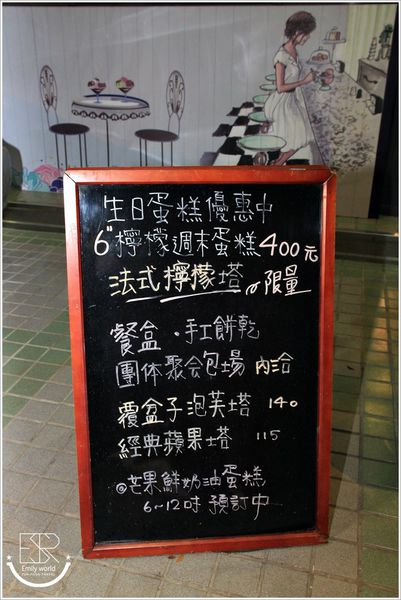 生日蛋糕優惠中
6"檸檬週末蛋糕400元
法式檸檬塔 限量
餐盒．手工餅乾
團体聚会包場 內洽
覆盆子泡芙塔 140
經典蘋果塔 115
◎芒果鮮奶油蛋糕
6~12吋 預訂中
Emily world